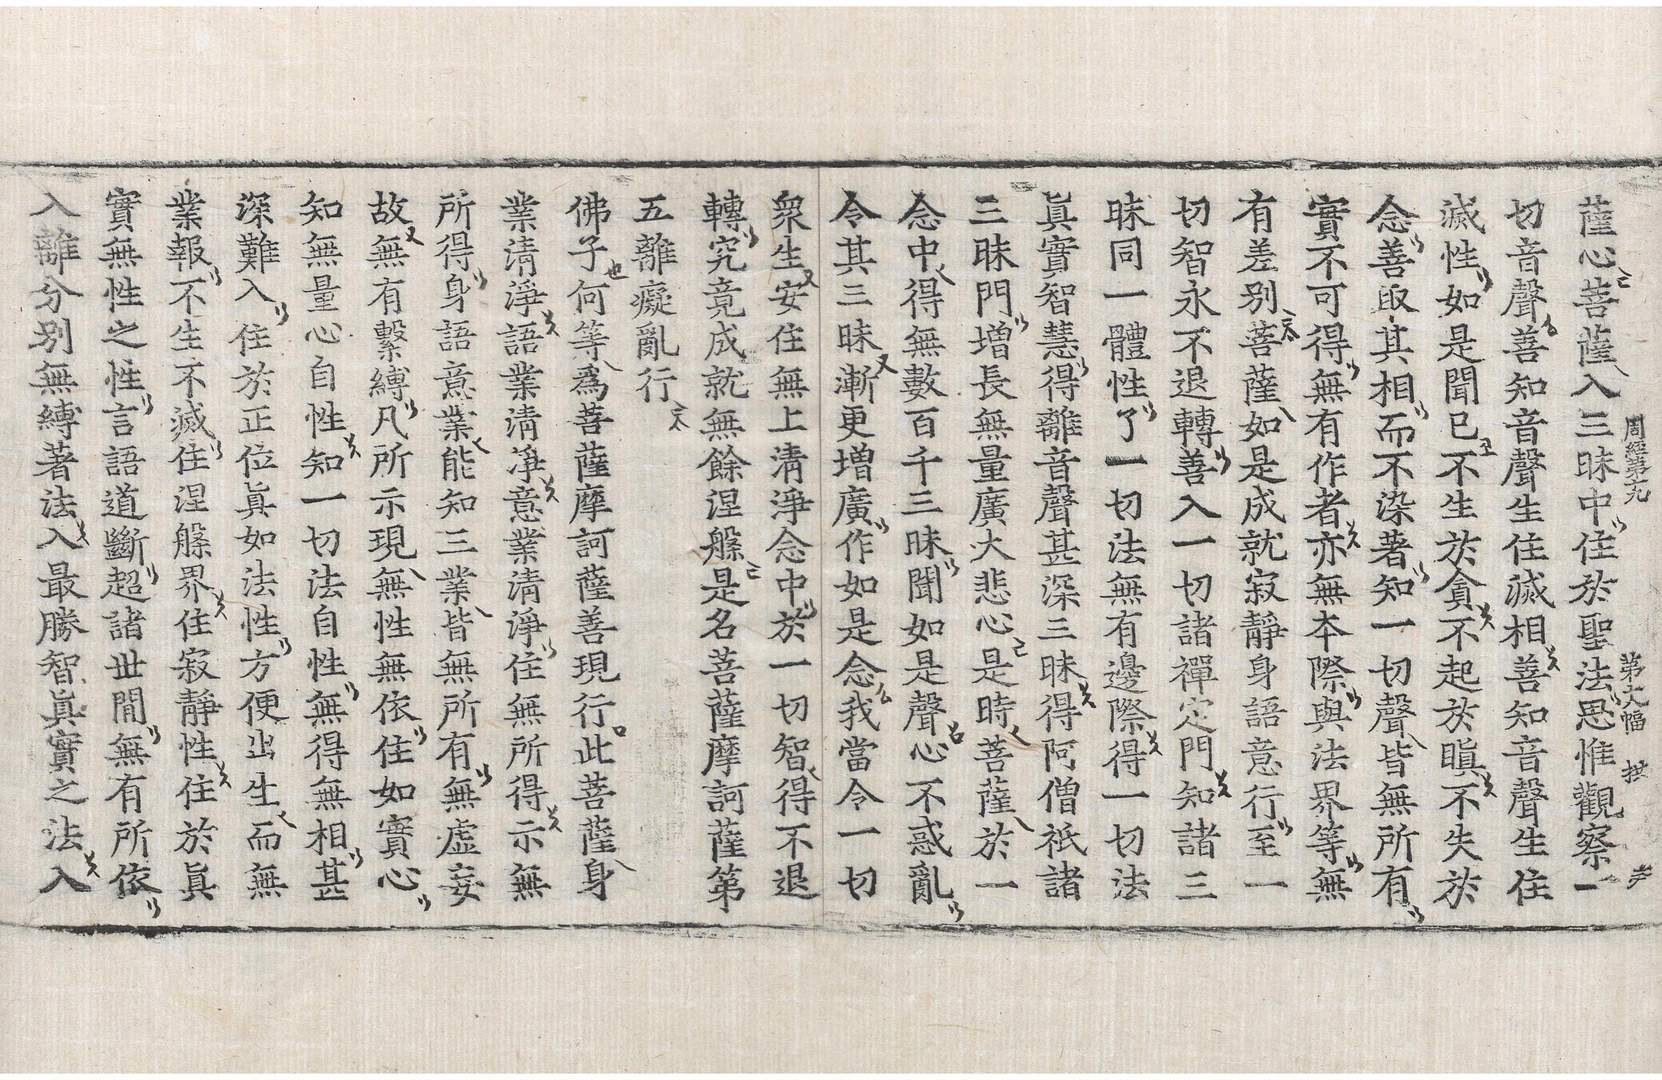 周經第十九
薩心菩薩入三昧中住於聖法思惟觀察一
切音聲善知音聲生住滅相善知音聲生住
滅性如是聞已不生於貪不起於瞋不失於
念善取其相而不染著知一切聲皆無所有
實不可得無有作者亦無本際與法界等無
有差别菩薩如是成就寂靜身語意行至一
切智永不退轉善入一切諸禪定門知諸三
昧同一體性了一切法無有邊際得一切法
眞實智慧得離音聲甚深三昧得阿僧祇諸
三昧門增長無量廣大悲心是時菩薩於一
念中得無數百千三昧聞如是聲心不惑亂
令其三昧漸更增廣作如是念我當令一切
衆生安住無上清淨念中於一切智得不退
轉究竟成就無餘涅槃是名菩薩摩訶薩第
五離癡亂行
佛子何等爲菩薩摩訶薩善現行此菩薩身
業清淨語業清淨意業清淨住無所得示無
所得身語意業能知三業皆無所有無虛妄
故無有繫縛凡所示現無性無依住如實心
知無量心自性知一切法自性無得無相甚
深難入住於正位眞如法性方便出生而無
業報不生不滅住涅槃界住寂靜性住於眞
實無性之性言語道斷超諸世間無有所依
入離分别無縛著法入最勝智眞實之法入